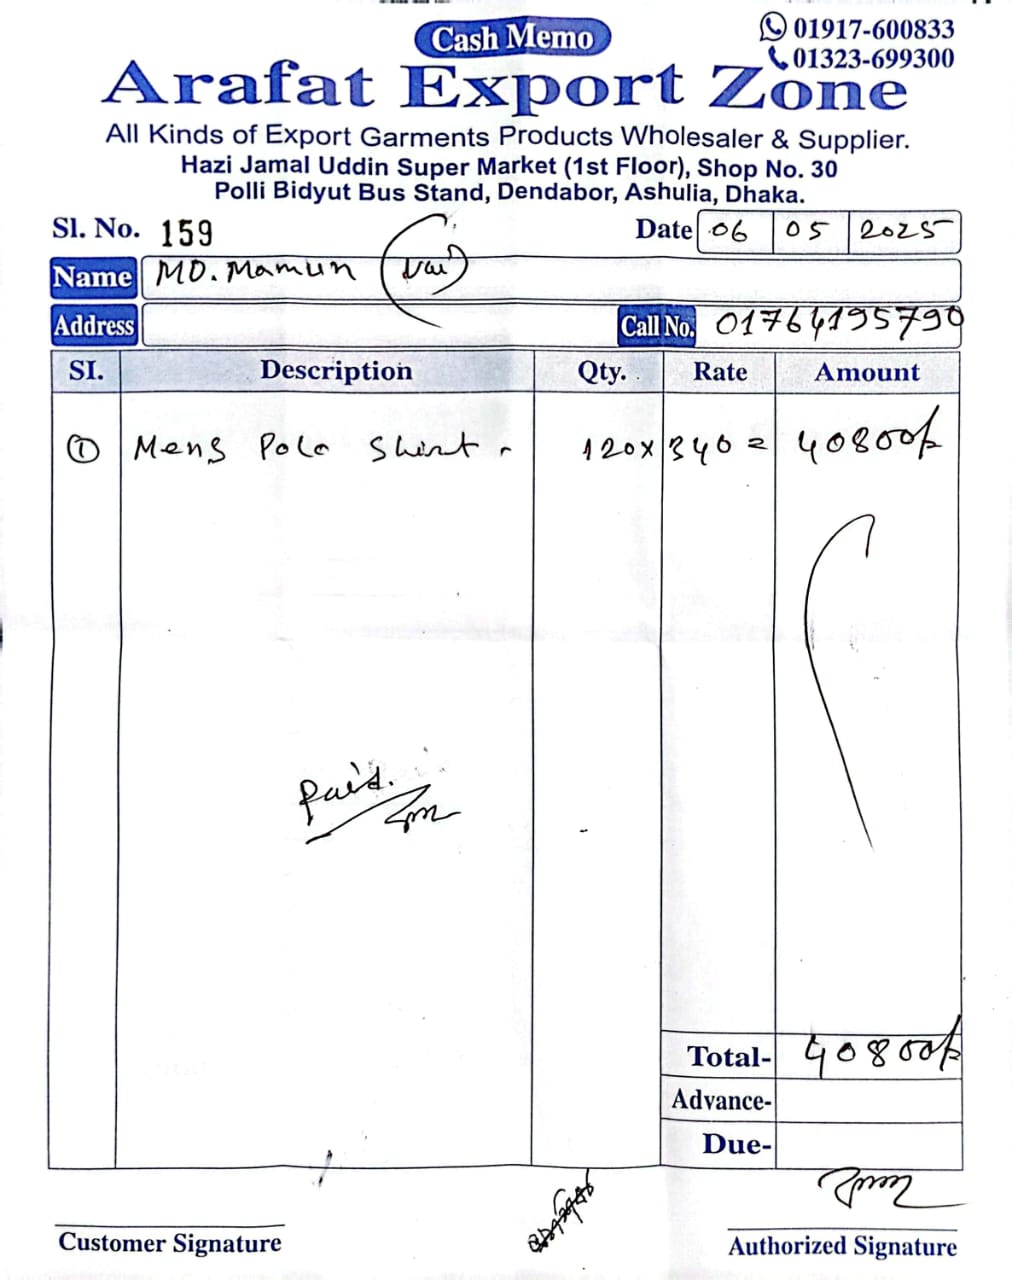 Cash Memo
01917-600833
01323-699300
Arafat Export Zone
All Kinds of Export Garments Products Wholesaler & Supplier.
Hazi Jamal Uddin Super Market (1st Floor), Shop No. 30
Polli Bidyut Bus Stand, Dendabor, Ashulia, Dhaka.
Sl. No. 159 Date 06 05 2025
Name MD. Mamun (Vai)
Address Call No. 01764195790
SI. Description Qty. Rate Amount
① Mens Polo Shirt 120 x 340 = 40800/-
Paid.
Total- 40800/-
Advance-
Due-
Customer Signature Authorized Signature